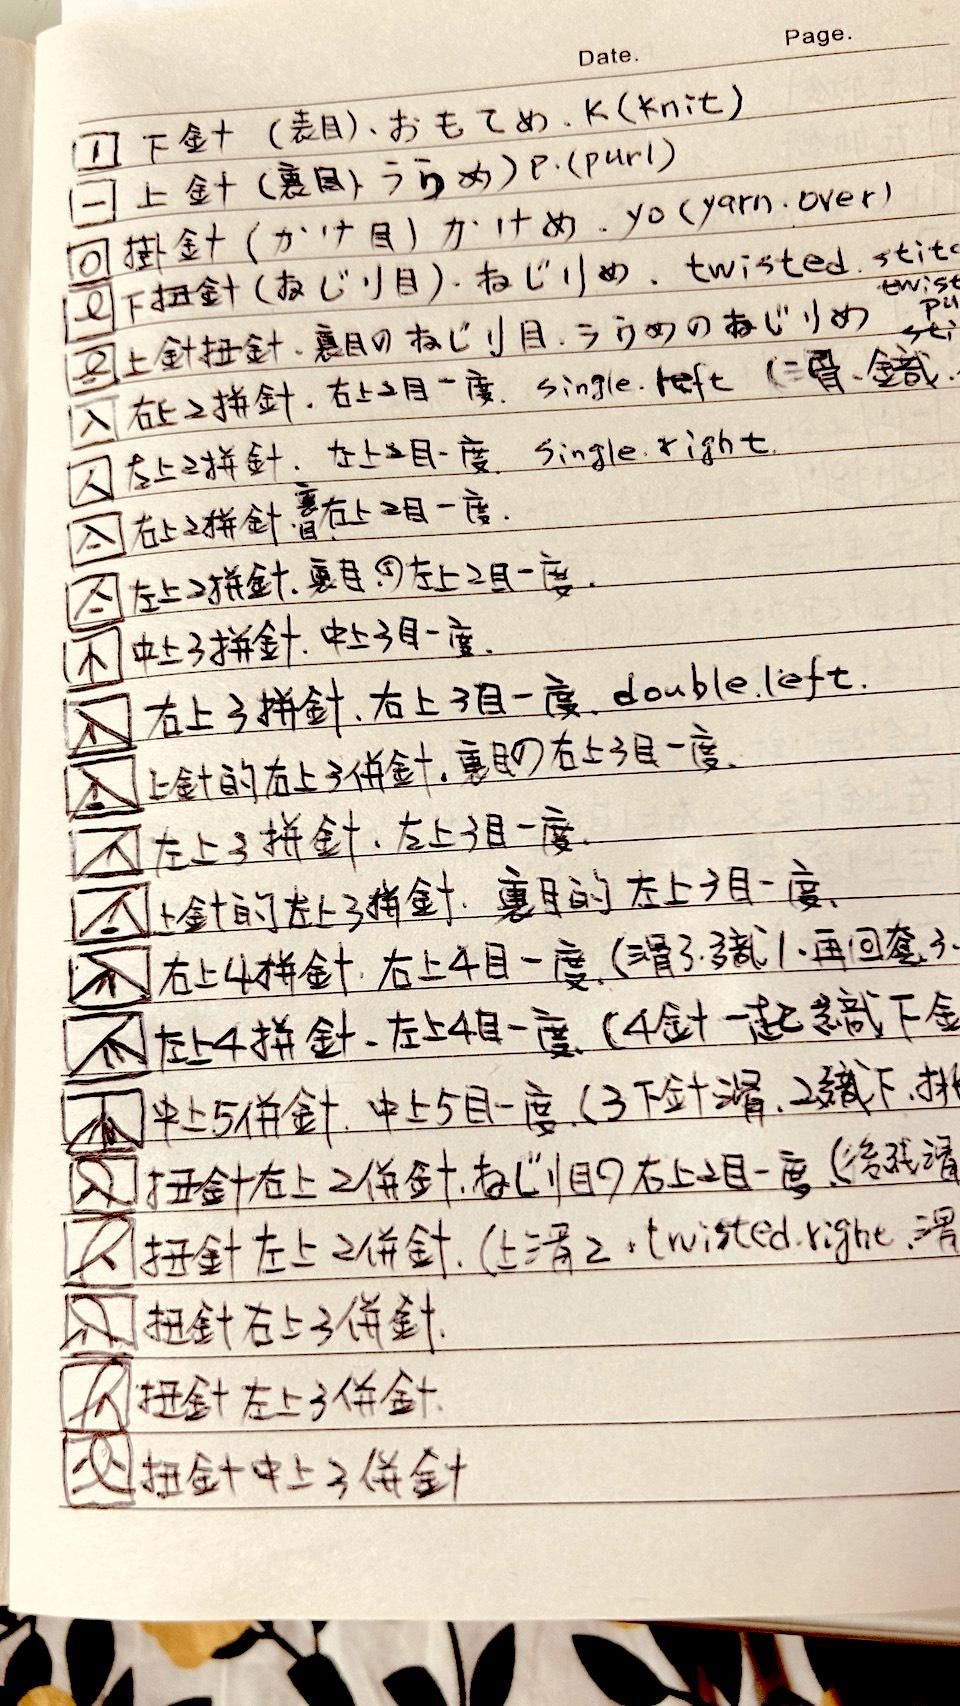 Date. Page.
下針 (表目)、おもてめ . K (knit)
上針 (裏目) うらめ) P. (purl)
掛針 (かけ目) かけめ . yo (yarn. over)
下扭針 (ねじり目)・ねじりめ . twisted. stitc
上針扭針・裏目のねじり目・うらめのねじりめ twist pu sti
右上2拼針. 右上2目一度. single. left (滑.織.
左上2拼針. 左上2目一度. single. right.
右上2拼針 裏目 右上2目一度.
左上2拼針. 裏目の左上2目一度.
中上3拼針. 中上3目一度.
右上3拼針. 右上3目一度. double. left.
上針的右上3併針. 裏目の右上3目一度.
左上3拼針. 左上3目一度.
上針的左上3拼針. 裏目的左上3目一度.
右上4拼針. 右上4目一度. (滑3.織1.再回套3.
左上4拼針. 左上4目一度. (4針一起織下金
中上5併針. 中上5目一度. (3下針滑. 2織下.
扭針右上2併針. ねじり目の右上2目一度. (
扭針左上2併針. (上滑2 . twisted. right. 滑
扭針右上3併針.
扭針左上3併針.
扭針中上3併針